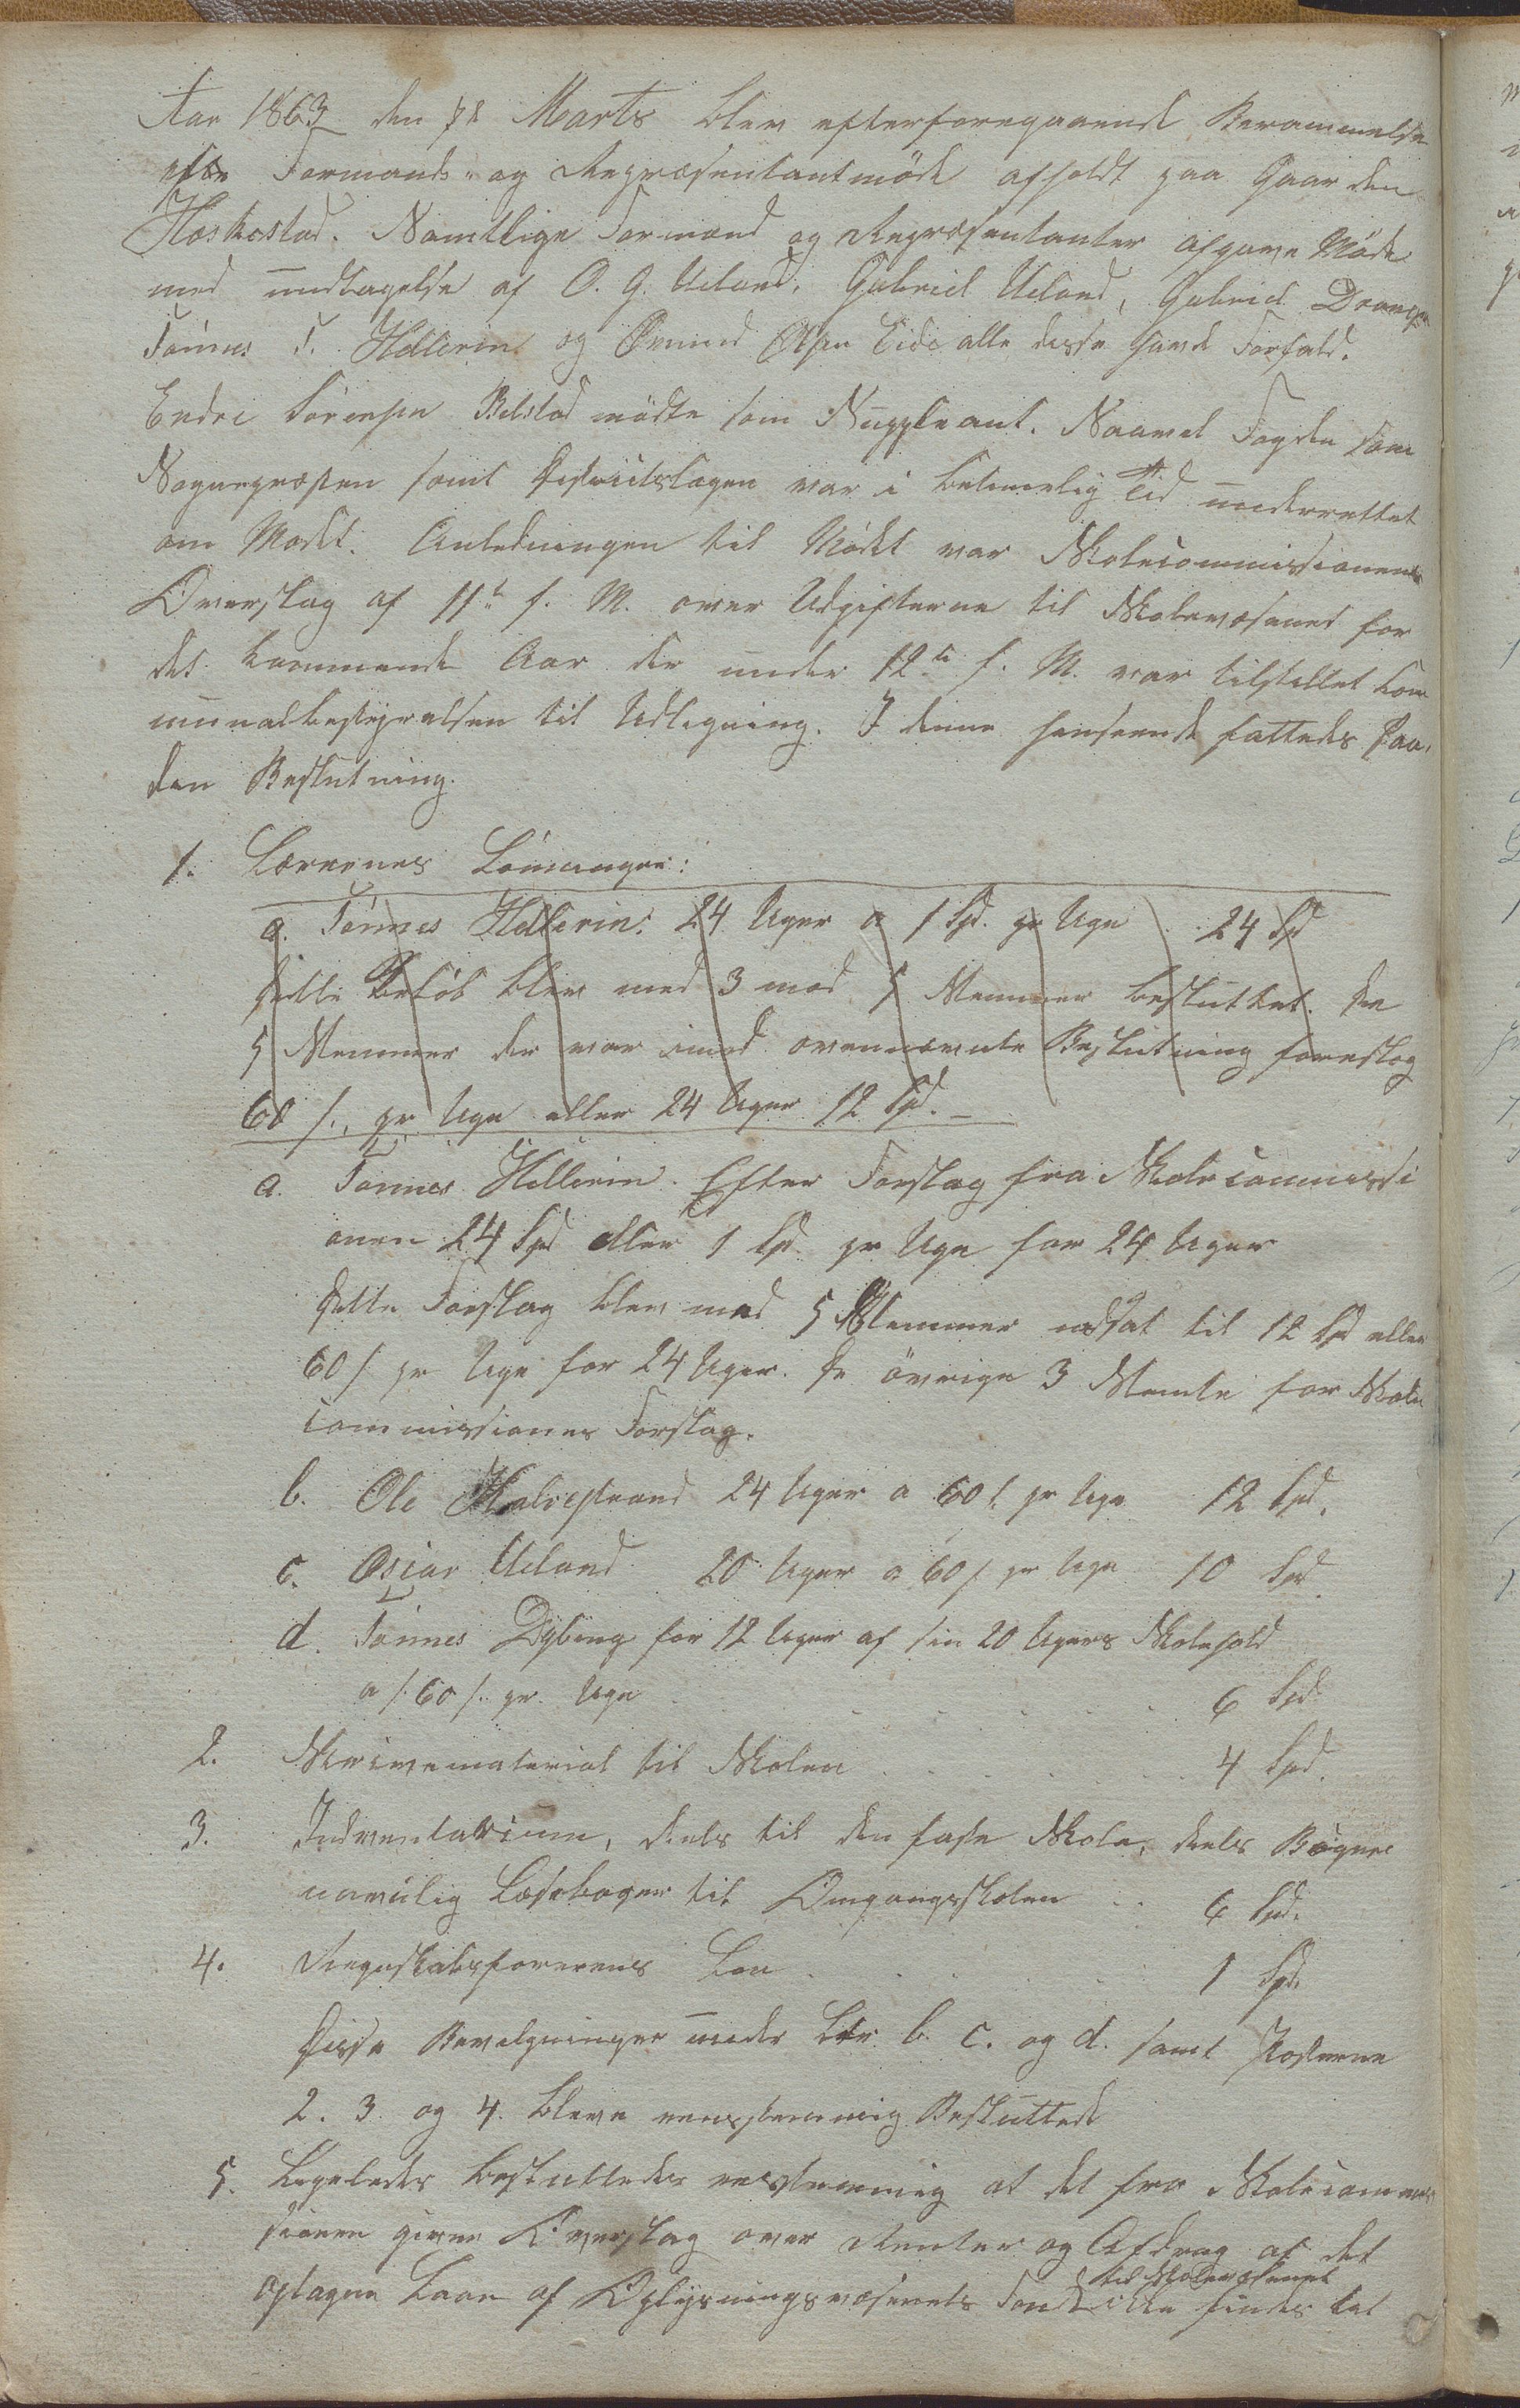 Aar 1863 den 7de Marts blev efterforegaaende Berammelse
Formands og Repræsentantmöde afholdt paa Gaarden
Heskestad. Samtlige Formænd og Repræsentanter afgave Möde
med undtagelse af O. G. Ueland, Gabriel Ueland, Gabriel
Tönnes T. Hellerin og Ömund Olsen Eide alle disse havde Forfald.
Endre Sörensen Bilstad mödte som Suppleant. Saavel Fogden som
Sognepræsten samt Districtslægen var i betimelig Tid underrettet
om Mödet. Anledningen til Mödet var Skolecommissionens
Overslag af 11te f. M. over Udgifterne til Skolevæsenet for
det kommende Aar der under 12te f. M. var tilstillet Com
munalbestyrelsen til Udligning. I denne henseende fattedes saa,
den Beslutning.
1. Lærernes Lönninger:
a. Tönnes Hellerin: 24 Uger a 1 Spd. pr Uge . 24 Spd
Dette Beløb blev med 3 mod 5 Stemmer besluttet. De
5 Stemmer der var imod ovennævnte Beslutning foreslog
60 s., pr Uge eller 24 Uger 12 Spd. –
a. Tönnes Hellerin. Efter Forslag fra Skolecommissi
onen 24 Spd eller 1 Spd pr Uge for 24 Uger
Dette Forslag blev med 5 Stemmer nedsat til 12 Spd eller
60 s pr Uge for 24 Uger. De övrige 3 Stemte for Skole
commissiones Forslag.
b. Ole Skalvestrand 24 Uger a 60 s. pr Uge 12 Spd.
c. Osvar Ueland 20 Uger a 60 s pr Uge 10 Spd
d. Tönnes Dybing for 12 Uger af sin 20 Ugers Skolehold
a s. 60 s. pr. Uge . . . . . 6 Spd
2. Skrivematerial til Skolen . . . . . 4 Spd.
3. Indventarium, deels til den faste Skole, deels Böger
navnlig Læseboger til Omgangsskolen . . 6 Spd.
4. Regnskabsförerens Løn . . . . . 1 Spd.
Disse Bevilgninger under Ltr. b. c. og d. samt Posterne
2. 3. og 4. bleve eensstemmig Besluttede
5. Ligeledes besluttedes eenstemmig at det fra Skolecommis
sionen givne Overslag over Renter og Afdrag af det
til Skolevæsenet
optagne Laan af Oplysningsvæsenets Fond ikke findes tal